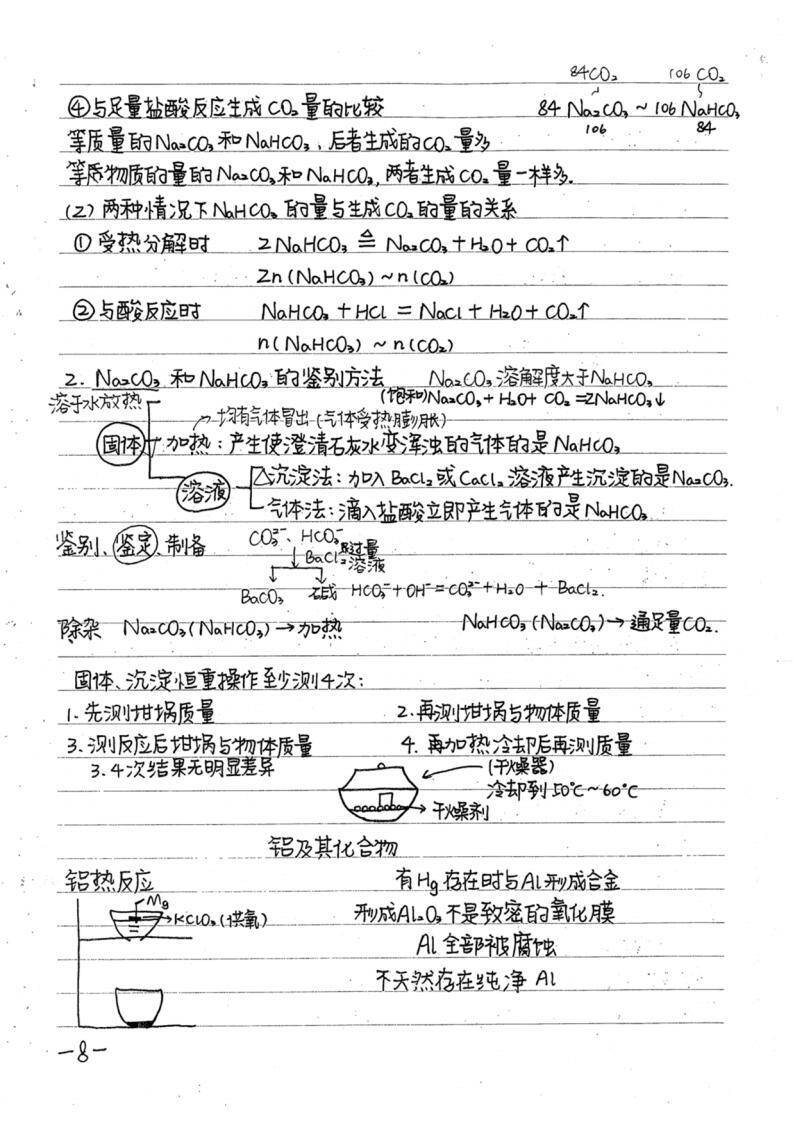 84CO₂ 106 CO₂
④与足量盐酸反应生成CO₂量的比较 84 Na₂CO₃ ~ 106 NaHCO₃
106 84
等质量的Na₂CO₃和NaHCO₃，后者生成的CO₂量多
等质物质的量的Na₂CO₃和NaHCO₃，两者生成CO₂量一样多.
(2) 两种情况下NaHCO₃的量与生成CO₂的量的关系
①受热分解时 2NaHCO₃ ≜ Na₂CO₃+H₂O+CO₂↑
2n(NaHCO₃)~n(CO₂)
②与酸反应时 NaHCO₃+HCl=NaCl+H₂O+CO₂↑
n(NaHCO₃)~n(CO₂)
2. Na₂CO₃和NaHCO₃的鉴别方法 Na₂CO₃溶解度大于NaHCO₃
溶于水放热 (饱和)Na₂CO₃+H₂O+CO₂=2NaHCO₃↓
均有气体冒出(气体受热膨胀)
固体 加热：产生使澄清石灰水变浑浊的气体的是NaHCO₃
溶液 △沉淀法：加入BaCl₂或CaCl₂溶液产生沉淀的是Na₂CO₃.
气体法：滴入盐酸立即产生气体的是NaHCO₃
鉴别、鉴定、制备 CO₃²⁻、HCO₃⁻
BaCl₂过量溶液
BaCO₃ 碱 HCO₃⁻+OH⁻=CO₃²⁻+H₂O + BaCl₂.
除杂 Na₂CO₃(NaHCO₃)→加热 NaHCO₃(Na₂CO₃)→通足量CO₂.
固体、沉淀恒重操作至少测4次：
1.先测坩埚质量 2.再测坩埚与物体质量
3.测反应后坩埚与物体质量 4.再加热冷却后再测质量
3.4次结果无明显差异 (干燥器)
冷却到50℃~60℃
干燥剂
铝及其化合物
铝热反应 有Hg存在时与Al形成合金
Mg
KClO₃(供氧) 形成Al₂O₃不是致密的氧化膜
Al全部被腐蚀
不天然存在纯净Al
-8-